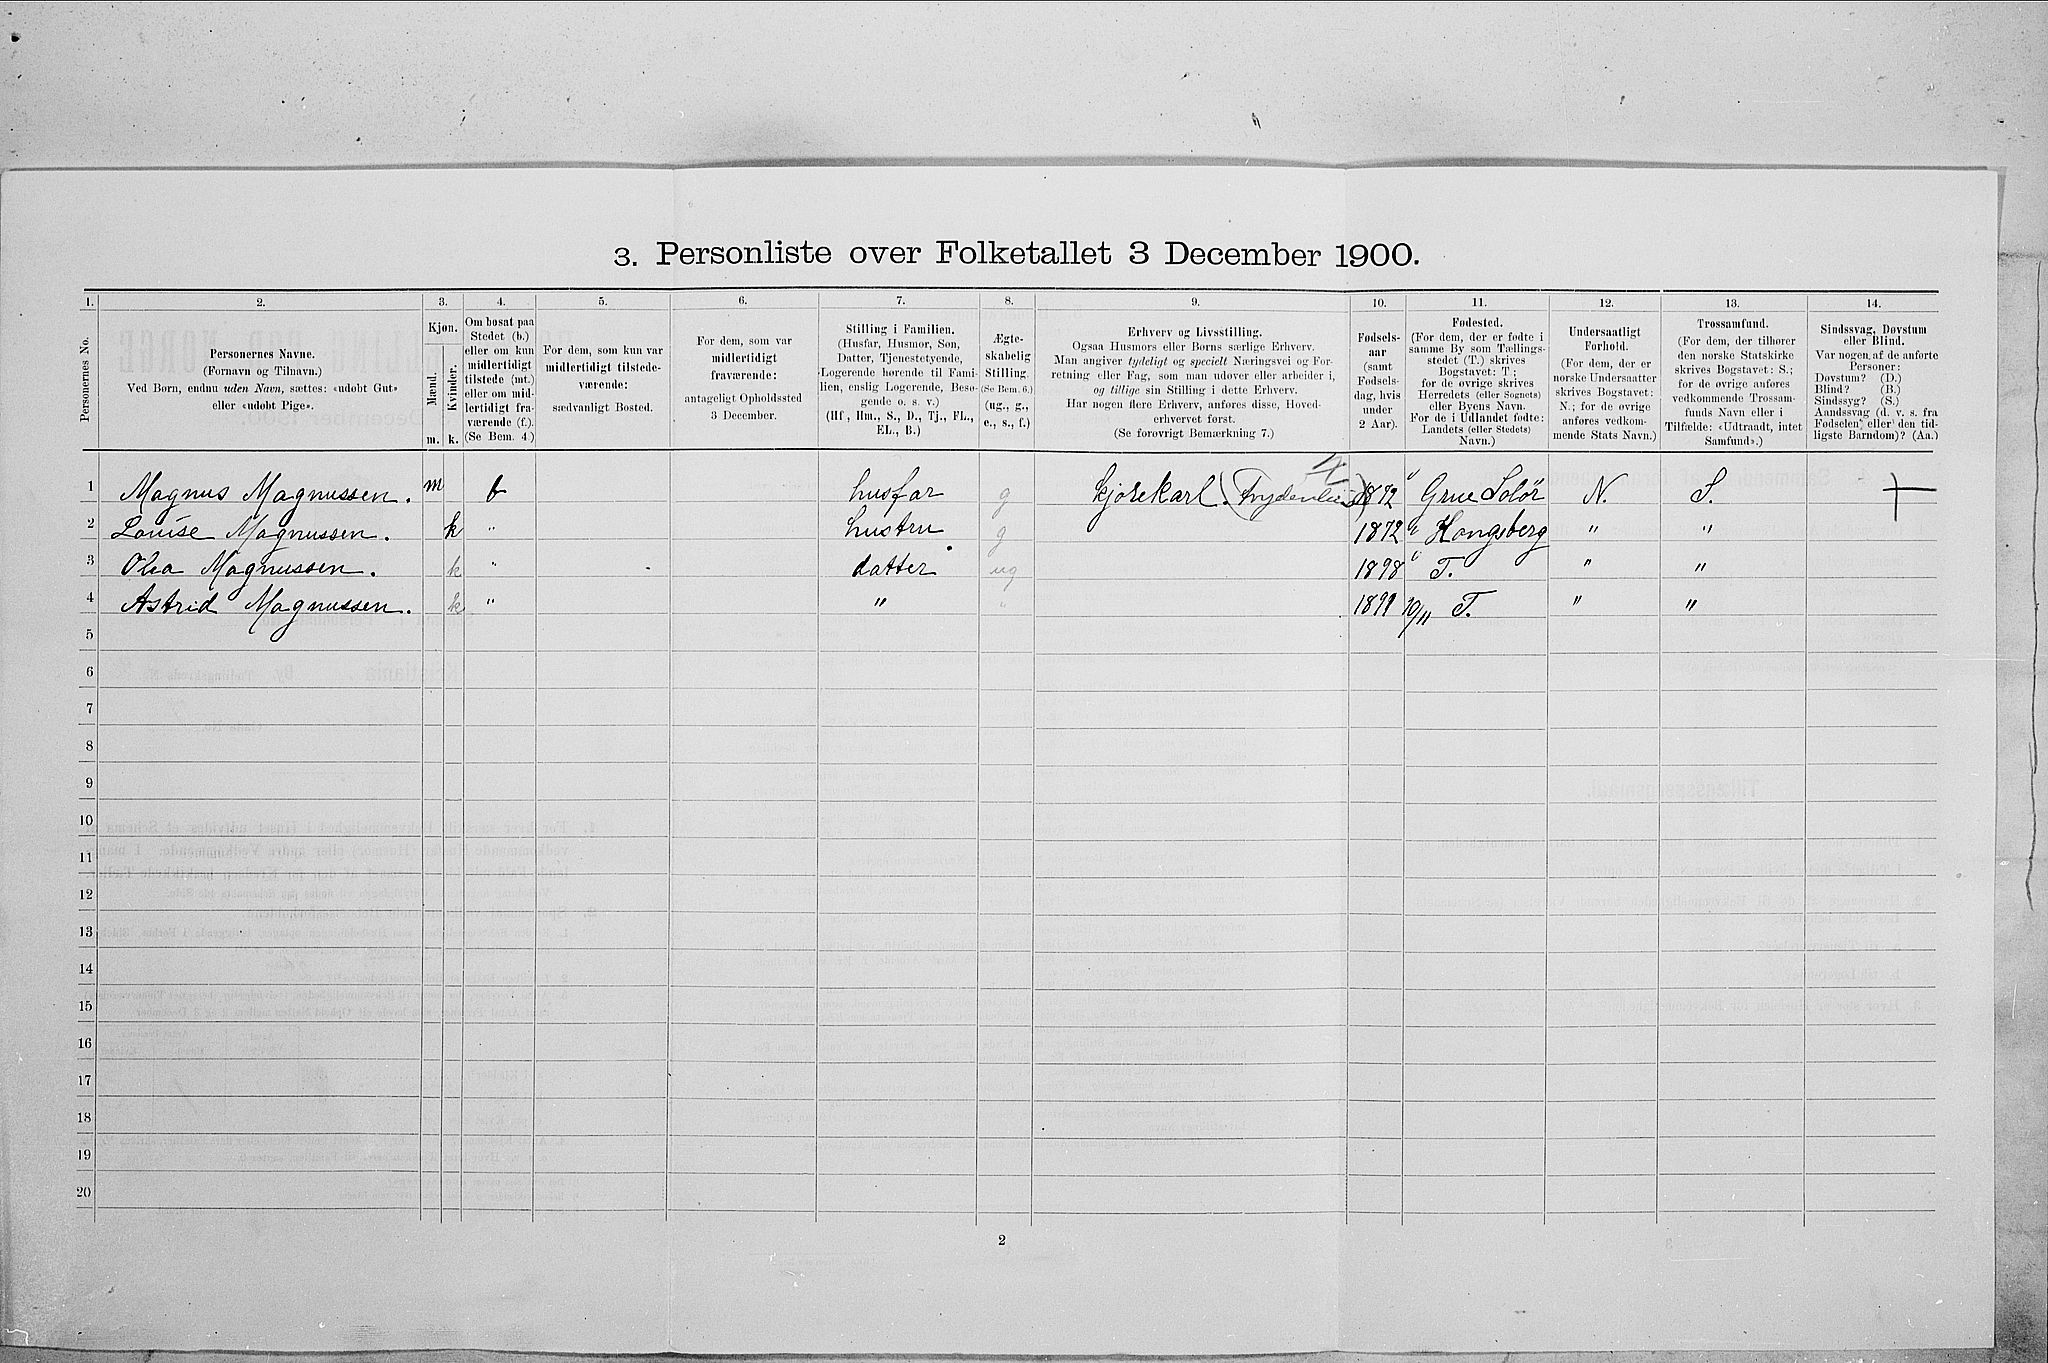 3. Personliste over Folketallet 3 December 1900.
1. 2. 3. 4. 5. 6. 7. 8. 9. 10. 11. 12. 13. 14.
Personernes No.
Personernes Navne.
(Fornavn og Tilnavn.)
Ved Børn, endnu uden Navn, sættes: «udøbt Gut»
eller «udøbt Pige».
Kjøn.
Mænd.
Kvinder.
m. k.
Om bosat paa
Stedet (b.)
eller om kun
midlertidigt
tilstede (mt.)
eller om mid-
lertidigt fra-
værende (f.).
(Se Bem. 4.)
For dem, som kun var
midlertidigt tilstede-
værende:
sædvanligt Bosted.
For dem, som var
midlertidigt
fraværende:
antageligt Opholdssted
3 December.
Stilling i Familien.
(Husfar, Husmor, Søn,
Datter, Tjenestetyende,
Logerende hørende til Fami-
lien, enslig Logerende, Besø-
gende o. s. v.)
(Hf, Hm., S., D., Tj., FL.,
EL., B.)
Ægte-
skabelig
Stilling.
(Se Bem. 6.)
(ug., g.,
e., s., f.)
Erhverv og Livsstilling.
Ogsaa Husmors eller Børns særlige Erhverv.
Man angiver tydeligt og specielt Næringsvei og For-
retning eller Fag, som man udøver eller arbeider i,
og tillige sin Stilling i dette Erhverv.
Har nogen flere Erhverv, anføres disse, Hoved-
erhvervet først.
(Se forøvrigt Bemærkning 7.)
Fødsels-
aar
(samt
Fødsels-
dag, hvis
under
2 Aar).
Fødested.
(For dem, der er fødte i
samme By som Tællings-
stedet (T.) skrives
Bogstavet: T;
for de øvrige skrives
Herredets (eller Sognets)
eller Byens Navn.
For de i Udlandet fødte:
Landets (eller Stedets)
Navn.)
Undersaatligt
Forhold.
(For dem, der er
norske Undersaatter
skrives Bogstavet:
N.; for de øvrige
anføres vedkom-
mende Stats Navn.)
Trossamfund.
(For dem, der tilhører
den norske Statskirke
skrives Bogstavet: S.;
for de øvrige anføres
vedkommende Trossam-
funds Navn eller i
Tilfælde: «Udtraadt, intet
Samfund».)
Sindssvag, Døvstum
eller Blind.
Var nogen af de anførte
Personer:
Døvstum? (D.)
Blind? (B.)
Sindssyg? (S.)
Aandssvag (d. v. s. fra
Fødselen eller den tid-
ligste Barndom)? (Aa.)
1 Magnus Magnussen. m b husfar g kjørekarl. 1872 " Grue Solør N. S.
2 Louise Magnussen. k " hustru g 1872 " Kongsberg " "
3 Olea Magnussen. k " datter ug 1898 " T. " "
4 Astrid Magnussen. k " " " 1899 10/11 T. " "
5
6
7
8
9
10
11
12
13
14
15
16
17
18
19
20
2